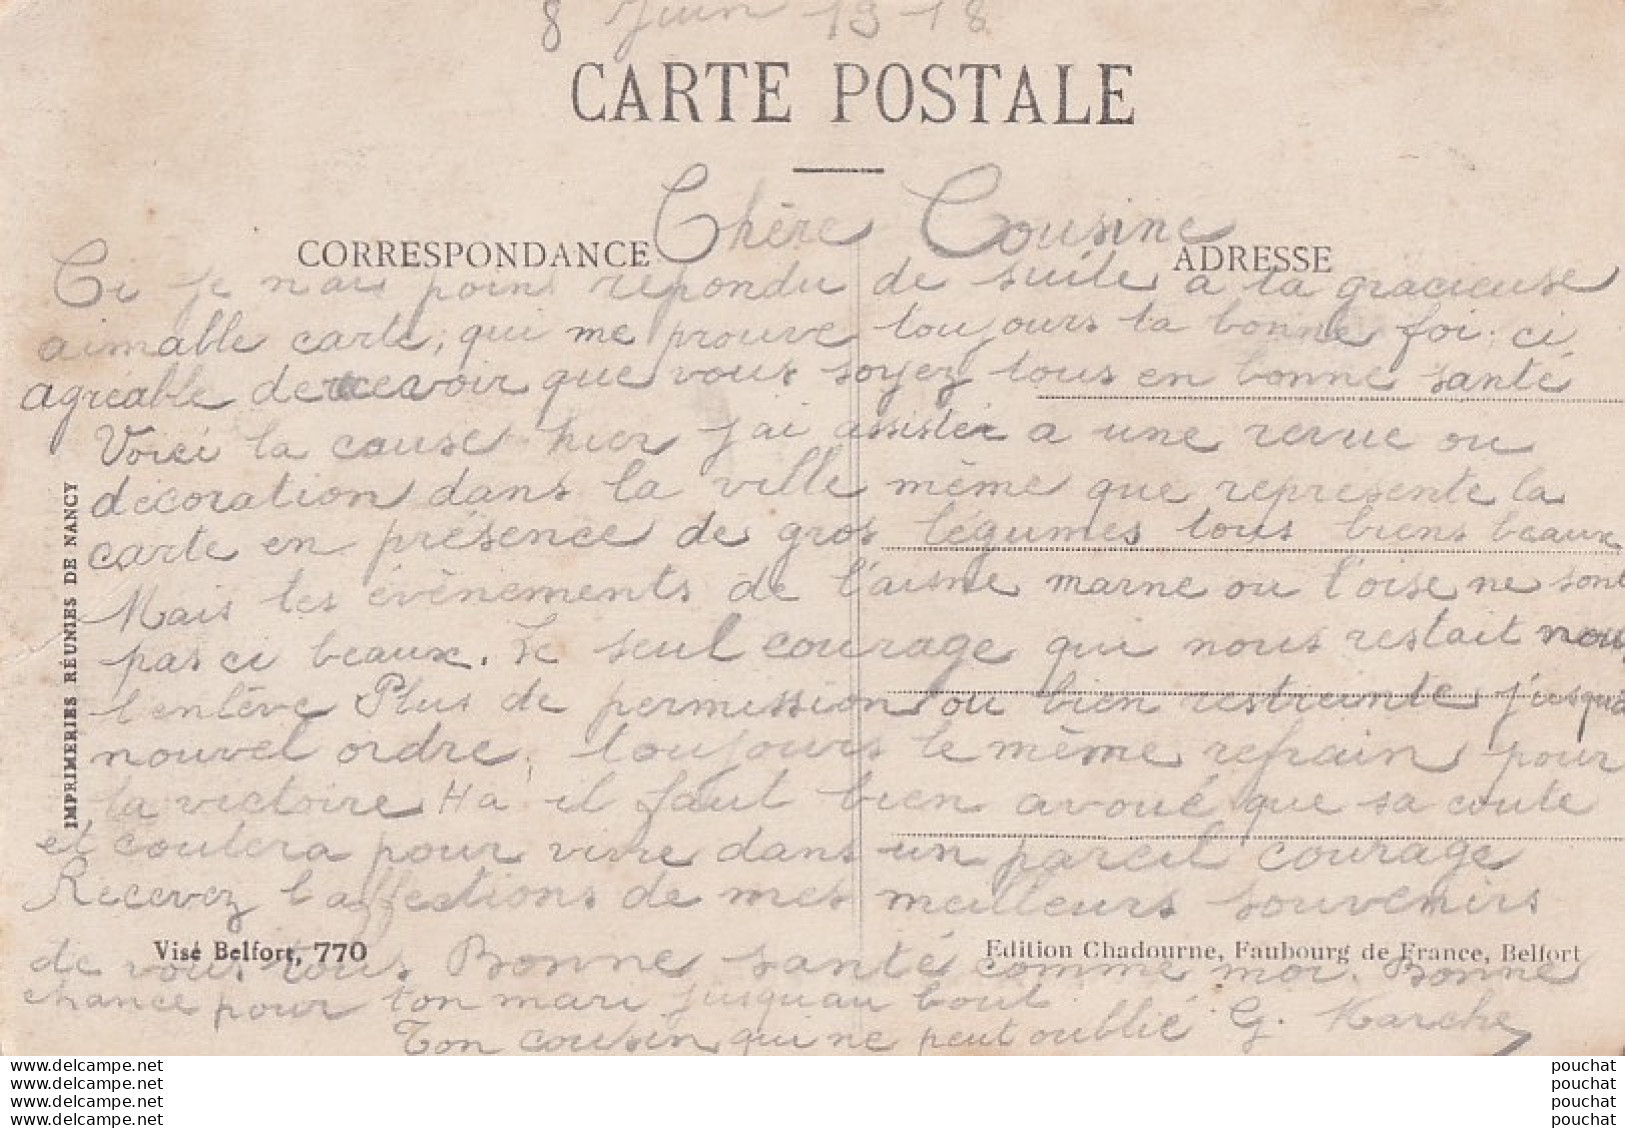 8 Juin 1918
CARTE POSTALE
Chère Cousine
CORRESPONDANCE
ADRESSE
Ci je nais point repondu de suite a ta gracieuse
aimable carte, qui me prouve toujours ta bonne foi. ci
agréable de recevoir que vous soyez tous en bonne santé
Voici la cause hier j'ai assister a une revue ou
décoration dans la ville même que représente la
carte en présence de gros légumes tous biens beaux
Mais les évènements de l'aisne marne ou l'oise ne sont
pas ci beaux. Le seul courage qui nous restait nous
l'enlève Plus de permission ou bien restreinte j'usqua
nouvel ordre, toujours le même refrain pour
la victoire Ha il faut bien avoué que sa coute
et coutera pour vivre dans un pareil courage
Recevez l'affections de mes meilleurs souvenirs
de vous tous. Bonne santé comme moi. Bonne
chance pour ton mari jusquau bout
Ton cousin qui ne peut oublié G. Karche
IMPRIMERIES RÉUNIES DE NANCY
Visé Belfort, 770
Edition Chadourne, Faubourg de France, Belfort
www.delcampe.net
www.delcampe.net
www.delcampe.net
www.delcampe.net
pouchat
pouchat
pouchat
pouchat